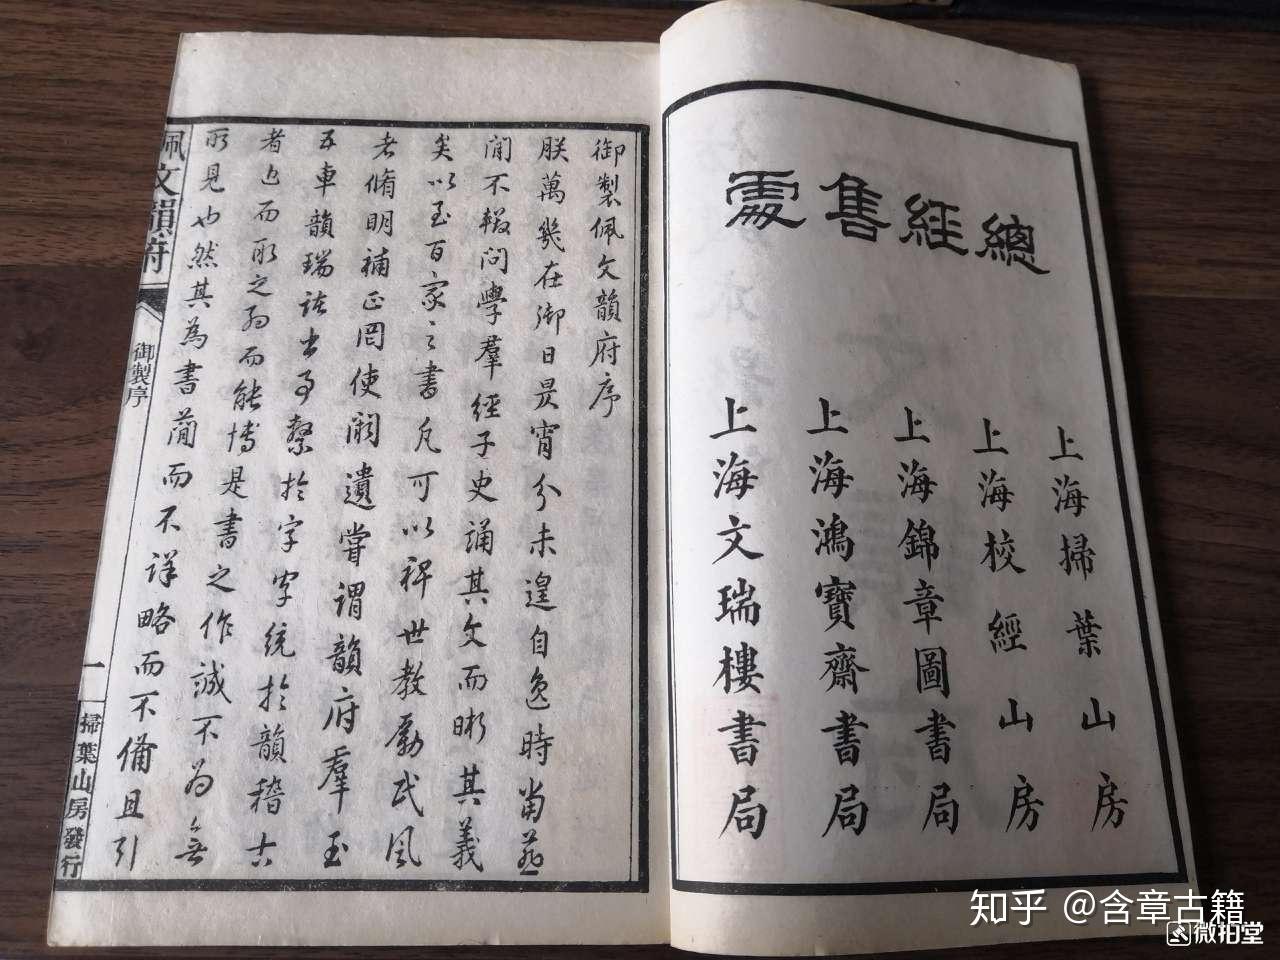 總經售處
上海掃葉山房
上海校經山房
上海錦章圖書局
上海鴻寶齋書局
上海文瑞樓書局
御製佩文韻府序
朕萬幾在御日昃宵分未遑自逸時當燕
閒不輟問學羣經子史誦其文而晰其義
矣以至百家之書凡可以裨世教勵民風
者脩明補正罔使闕遺嘗謂韻府羣玉
五車韻瑞諸書事繫於字字統於韻稽古
者近而取之約而能博是書之作誠不為無
所見也然其為書簡而不詳略而不備且引
佩文韻府
御製序
一
掃葉山房發行
知乎 @含章古籍
微拍堂